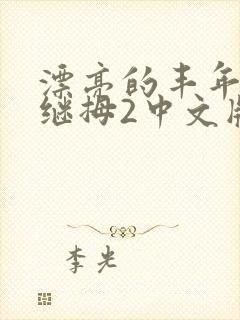 漂亮的丰年
继拇2中文版
李光